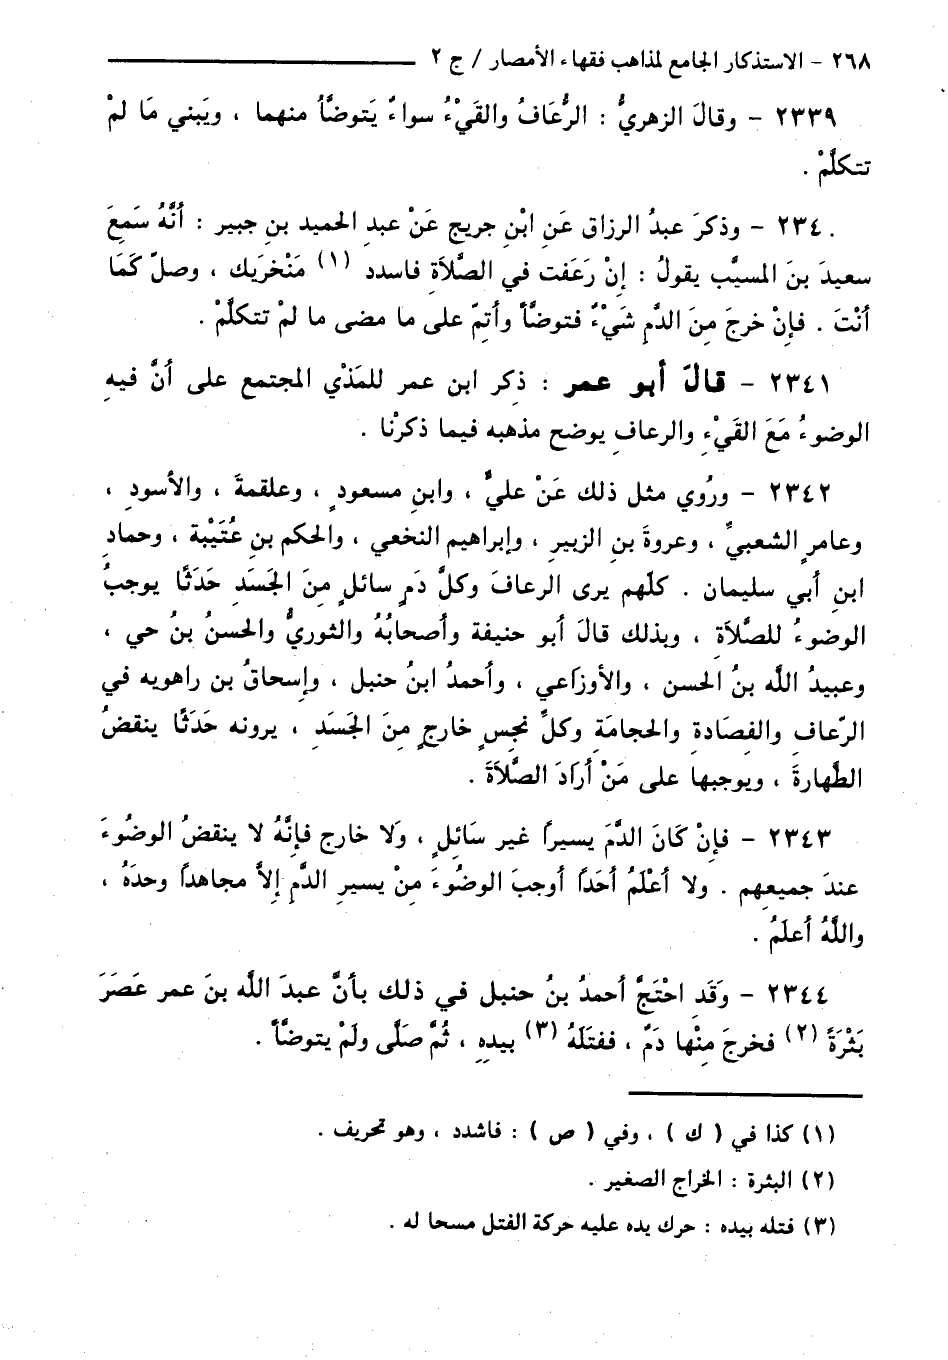 ٢٦٨ - الاستذكار الجامع لمذاهب فقهاء الأمصار / ج ٢
٢٣٣٩ - وقالَ الزهريُّ : الرُّعَافُ والقَيْءُ سواءٌ يَتوضَّأُ منهما ، ويَبني مَا لمْ
تتكلَّمْ .
٢٣٤٠ - وذكرَ عبدُ الرزاق عَنِ ابْنِ جريج عَنْ عبدِ الحميد بنِ جبير : أنَّهُ سَمِعَ
سعيدَ بنَ المسيَّب يقولُ : إنْ رَعَفت في الصَّلاَةِ فاسدد (١) مَنْخرَيك ، وصلّ كَمَا
أنْتَ . فإنْ خرجَ مِنَ الدَّمِ شَيْءٌ فتوضَّأْ وأتمّ على ما مضى ما لمْ تتكلَّمْ .
٢٣٤١ - قالَ أبو عمر : ذكر ابن عمر للمَذْي المجتمع على أنَّ فيه
الوضوءُ مَعَ القَيْءِ والرعافِ يوضح مذهبه فيما ذكرْنا .
٢٣٤٢ - ورُوي مثل ذلك عَنْ عليٌّ ، وابنِ مسعودٍ ، وعلقمةَ ، والأسودِ ،
وعامرٍ الشعبيِّ ، وعروةَ بنِ الزبيرِ ، وإبراهيم النخعي ، والحكم بنِ عُتَيْبة ، وحمادِ
ابنِ أبي سليمان . كلّهم يرى الرعافَ وكلَّ دَمٍ سائلٍ مِنَ الجَسَدِ حَدَثًا يوجبُ
الوضوءُ للصَّلاَةِ ، وبذلك قالَ أبو حنيفة وأصحابُهُ والثوريُّ والحسنُ بنُ حي ،
وعبيدُ اللَّه بنُ الحسن ، والأوزَاعي ، وأحمدُ ابنُ حنبل ، وإسحاقُ بن راهويه في
الرّعاف والفصَادة والحجامَة وكلِّ نجسٍ خارجٍ مِنَ الجَسَدِ ، يرونه حَدَثًا ينقضُ
الطَّهارةَ ، ويوجبها على مَنْ أرَادَ الصَّلاَةَ .
٢٣٤٣ - فإنْ كَانَ الدَّمَ يسيراً غير سَائِلٍ ، وَلا خارج فإنَّهُ لا ينقضُ الوضُوءَ
عندَ جميعِهم . ولا أعْلَمُ أحَداً أوجبَ الوضُوءَ مِنْ يسيرِ الدَّمِ إلاَّ مجاهداً وحدَهُ ،
واللَّهُ أعلَمُ .
٢٣٤٤ - وَقَدِ احْتَجَّ أحمدُ بنُ حنبل في ذلك بأنَّ عبدَ اللَّه بنَ عمر عَصَرَ
بَثْرَةً (٢) فخرجَ مِنْها دَمٌ ، ففتَلَهُ (٣) بيدِهِ ، ثُمَّ صَلَّى ولَمْ يتوضَّأْ .
(١) كذا في ( ك ) ، وفي ( ص ) : فاشدد ، وهو تحريف .
(٢) البثرة : الخراج الصغير .
(٣) فتله بيده : حرك يده عليه حركة الفتل مسحا له .